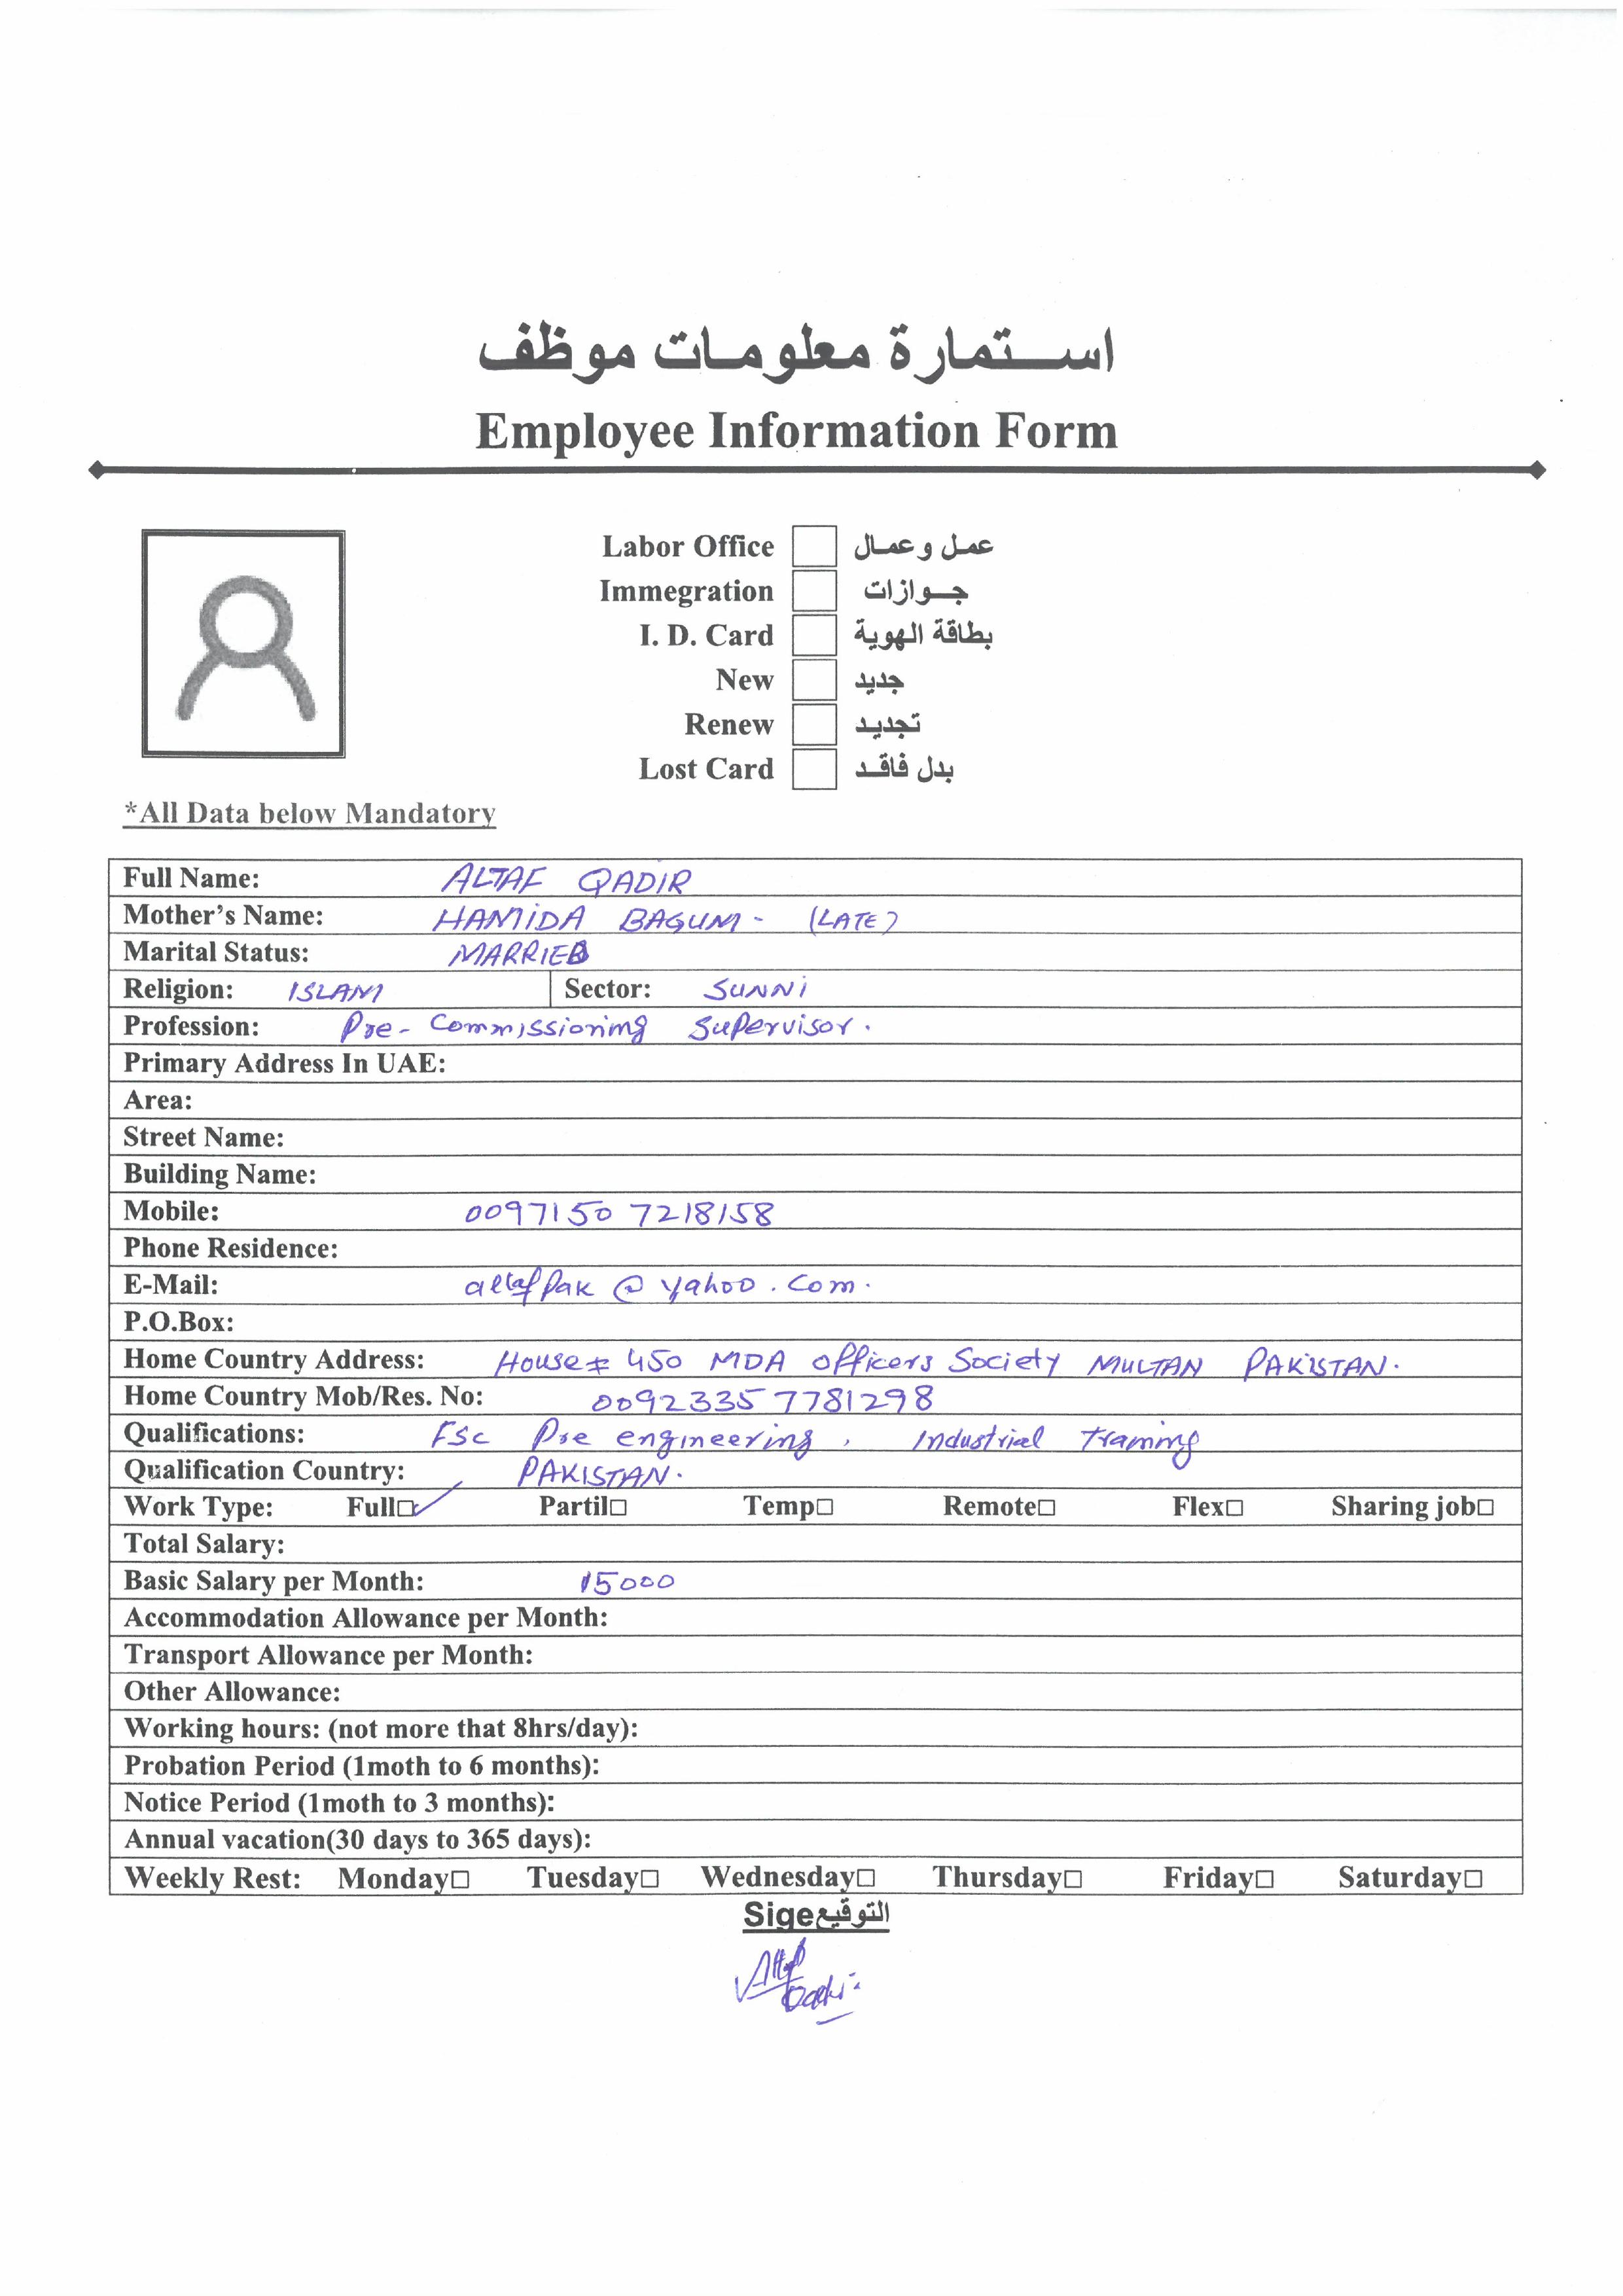 استمارة معلومات موظف
Employee Information Form
Labor Office عمل وعمال
Immegration جوازات
I. D. Card بطاقة الهوية
New جديد
Renew تجديد
Lost Card بدل فاقد
*All Data below Mandatory
Full Name: ALTAF QADIR
Mother's Name: HAMIDA BAGUM - (LATE)
Marital Status: MARRIED
Religion: ISLAM Sector: SUNNI
Profession: Pre-Commissioning Supervisor.
Primary Address In UAE:
Area:
Street Name:
Building Name:
Mobile: 0097150 7218158
Phone Residence:
E-Mail: altafpak @ yahoo.com.
P.O.Box:
Home Country Address: House# 450 MDA officers Society MULTAN PAKISTAN.
Home Country Mob/Res. No: 0092335 7781298
Qualifications: FSc Pre engineering, Industrial Training
Qualification Country: PAKISTAN.
Work Type: Full☐✓ Partil☐ Temp☐ Remote☐ Flex☐ Sharing job☐
Total Salary:
Basic Salary per Month: 15000
Accommodation Allowance per Month:
Transport Allowance per Month:
Other Allowance:
Working hours: (not more that 8hrs/day):
Probation Period (1moth to 6 months):
Notice Period (1moth to 3 months):
Annual vacation(30 days to 365 days):
Weekly Rest: Monday☐ Tuesday☐ Wednesday☐ Thursday☐ Friday☐ Saturday☐
Sigeالتوقيع